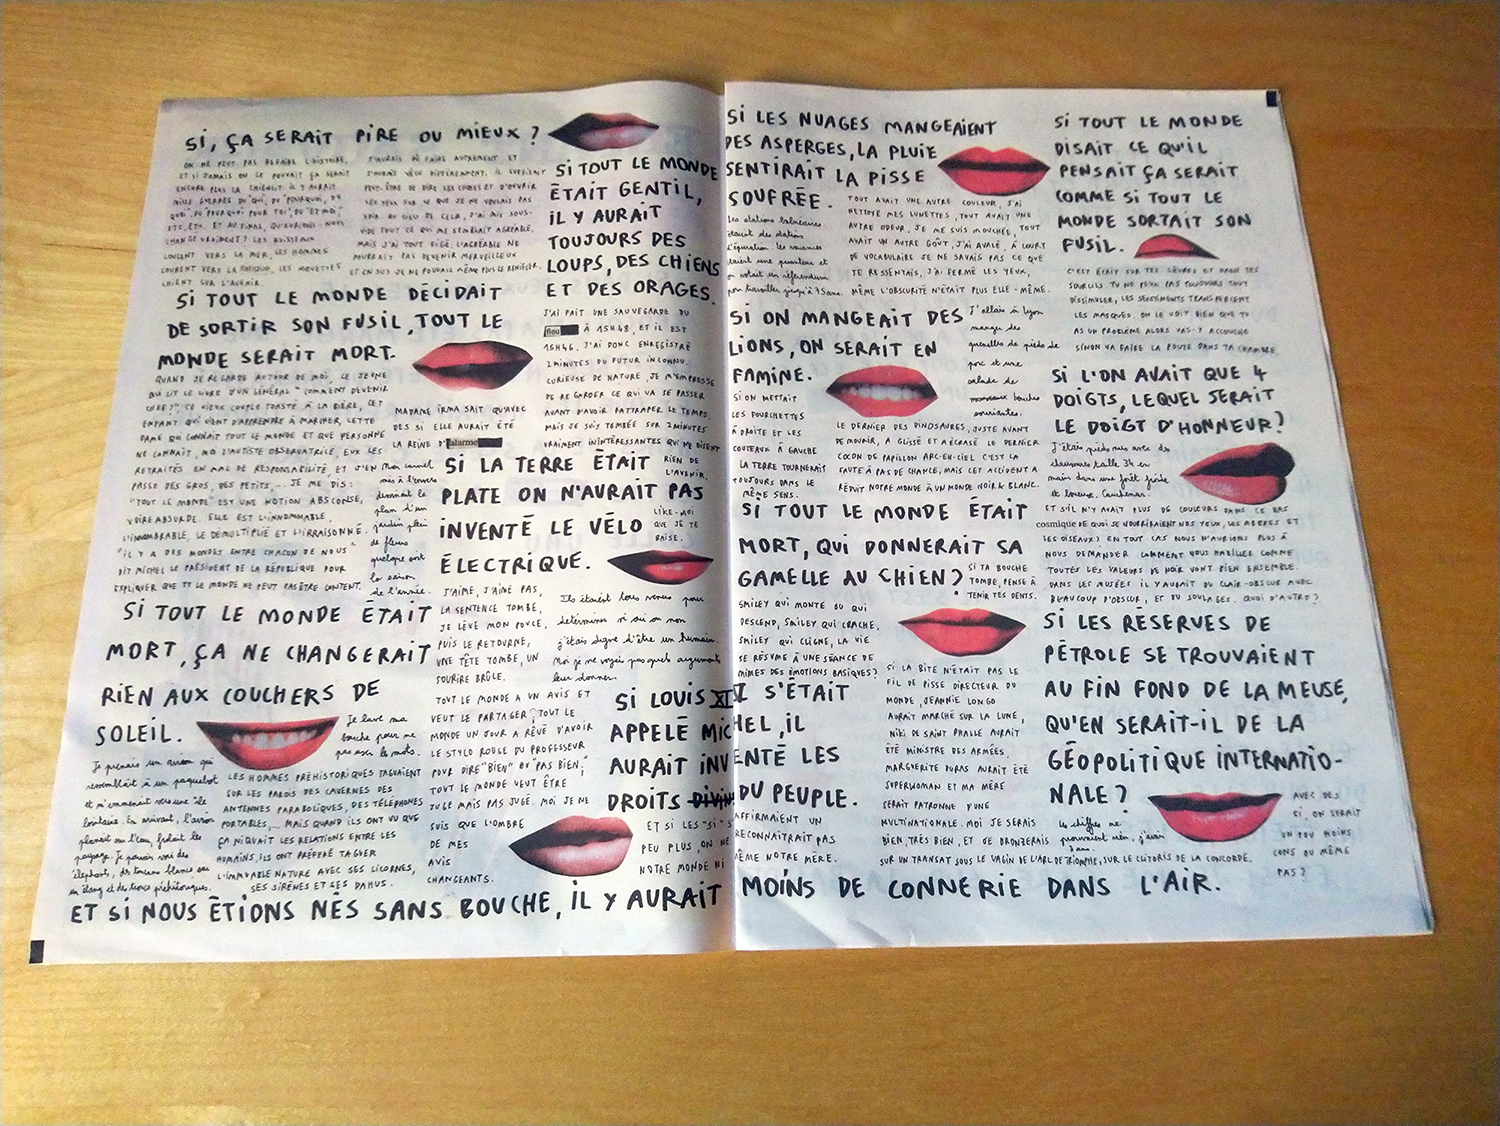 SI, ÇA SERAIT PIRE OU MIEUX ?
ON NE PEUT PAS REFAIRE L'HISTOIRE,
ET SI JAMAIS ON LE POUVAIT ÇA SERAIT
ENCORE PLUS LA CHIENLIT. IL Y AURAIT
COULENT VERS LA MER, LES HOMMES
COURENT VERS LA LES MOUETTES
CHIENT SUR L'AVENIR.
J'AURAIS PU FAIRE AUTREMENT ET
J'AURAI VÉCU DIFFÉREMMENT. IL SUFFISAIT
PEUT-ÊTRE DE DIRE LES CHOSES ET D'OUVRIR
LES YEUX SUR CE QUE JE NE VOULAIS PAS
VOIR AU LIEU DE CELA, J'AI MIS SOUS-
VIDE TOUT CE QUI ME SEMBLAIT AGRÉABLE,
MAIS J'AI TOUT FIGÉ. L'AGRÉABLE NE
POURRAIT PAS DEVENIR MERVEILLEUX
ET EN SUS JE NE POUVAIS MÊME PLUS LE RENIFLER.
SI TOUT LE MONDE
ÉTAIT GENTIL,
IL Y AURAIT
TOUJOURS DES
LOUPS, DES CHIENS
ET DES ORAGES.
SI TOUT LE MONDE DÉCIDAIT
DE SORTIR SON FUSIL, TOUT LE
MONDE SERAIT MORT.
QUAND JE REGARDE AUTOUR DE MOI, CE JEUNE
QUI LIT LE LIVRE D'UN GÉNÉRAL "COMMENT DEVENIR
CHEF?", CE VIEUX COUPLE TOASTÉ À LA BIÈRE, CET
ENFANT QUI VIENT D'APPRENDRE À MARCHER, CETTE
DAME QUI CONNAÎT TOUT LE MONDE ET QUE PERSONNE
NE CONNAÎT, MOI L'AUTISTE OBSERVATRICE, EUX LES
RETRAITÉS EN MAL DE RESPONSABILITÉ ET J'EN
PASSE DES GROS, DES PETITS,... JE ME DIS:
"TOUT LE MONDE" EST UNE NOTION ABSCONSE,
VOIRE ABSURDE. ELLE EST L'INNOMMABLE,
L'INNOMBRABLE, LE DÉMULTIPLIÉ ET L'IRRAISONNÉ.
"IL Y A DES MONDES ENTRE CHACUN DE NOUS"
DIT MICHEL LE PRÉSIDENT DE LA RÉPUBLIQUE POUR
EXPLIQUER QUE TT LE MONDE NE PEUT PAS ÊTRE CONTENT.
MADAME IRMA SAIT QU'AVEC
DES SI ELLE AURAIT ÉTÉ
LA REINE D'alarme
Mon carnet
mis à l'envers
dessinait le
plan d'un
jardin plein
de fleurs
quelque soit
la saison
de l'année.
J'AI FAIT UNE SAUVEGARDE DU
flou À 15H48, ET IL EST
15H46. J'AI DONC ENREGISTRÉ
2 MINUTES DU FUTUR INCONNU.
CURIEUSE DE NATURE, JE M'EMPRESSE
DE REGARDER CE QUI VA SE PASSER
AVANT D'AVOIR RATTRAPER LE TEMPS,
MAIS JE SUIS TOMBÉE SUR 2 MINUTES
VRAIMENT ININTÉRESSANTES QUI NE DISENT
RIEN DE
L'AVENIR.
SI LA TERRE ÉTAIT
PLATE ON N'AURAIT PAS
INVENTÉ LE VÉLO
ÉLECTRIQUE.
LIKE-MOI
QUE JE TE
BAISE.
SI TOUT LE MONDE ÉTAIT
MORT, ÇA NE CHANGERAIT
RIEN AUX COUCHERS DE
SOLEIL.
Je lave ma
bouche pour ne
pas user les mots.
Je prenais un avion qui
ressemblait à un paquebot
et m'emmenait vers une île
lointaine. En arrivant, l'avion
planait sur l'eau, frôlant les
paysages. Je pouvais voir des
LES HOMMES PRÉHISTORIQUES TAGUAIENT
SUR LES PAROIS DES CAVERNES DES
ANTENNES PARABOLIQUES, DES TÉLÉPHONES
PORTABLES,... MAIS QUAND ILS ONT VU QUE
ÇA NIQUAIT LES RELATIONS ENTRE LES
HUMAINS, ILS ONT PRÉFÉRÉ TAGUER
L'IMMUABLE NATURE AVEC SES LICORNES,
SES SIRÈNES ET SES DAHUS.
J'AIME, J'AIME PAS,
LA SENTENCE TOMBE,
JE LÈVE MON POUCE,
PUIS LE RETOURNE,
UNE TÊTE TOMBE, UN
SOURIRE BRÛLE.
Ils étaient tous venus pour
déterminer si oui ou non
j'étais digne d'être un humain.
Moi je ne voyais pas quels arguments
leur donner.
TOUT LE MONDE A UN AVIS ET
VEUT LE PARTAGER, TOUT LE
MONDE UN JOUR A RÊVÉ D'AVOIR
LE STYLO ROUGE DU PROFESSEUR
POUR DIRE "BIEN" OU "PAS BIEN",
TOUT LE MONDE VEUT ÊTRE
JUGE MAIS PAS JUGÉ. MOI JE NE
SUIS QUE L'OMBRE
DE MES
AVIS
CHANGEANTS.
SI LOUIS XI S'ÉTAIT
APPELÉ MICHEL, IL
AURAIT INVENTÉ LES
DROITS DIVINS DU PEUPLE.
ET SI LES "SI" S'AFFIRMAIENT UN
PEU PLUS, ON NE RECONNAÎTRAIT PAS
NOTRE MONDE NI MÊME NOTRE MÈRE.
SI LES NUAGES MANGEAIENT
DES ASPERGES, LA PLUIE
SENTIRAIT LA PISSE
SOUFRÉE.
Les stations balnéaires
étaient des stations
d'épuration, les vacances
étaient une punition et
on votait un référendum
pour travailler jusqu'à 75 ans.
TOUT AVAIT UNE AUTRE COULEUR, J'AI
NETTOYÉ MES LUNETTES, TOUT AVAIT UNE
AUTRE ODEUR, JE ME SUIS MOUCHÉE, TOUT
AVAIT UN AUTRE GOÛT, J'AI AVALÉ, À COURT
DE VOCABULAIRE JE NE SAVAIS PAS CE QUE
JE RESSENTAIS, J'AI FERMÉ LES YEUX,
MÊME L'OBSCURITÉ N'ÉTAIT PLUS ELLE-MÊME.
SI ON MANGEAIT DES
LIONS, ON SERAIT EN
FAMINE.
J'allais à Lyon
manger des
quenelles de pieds de
porc et une
salade de
bouches
souriantes.
SI ON METTAIT
LES FOURCHETTES
À DROITE ET LES
COUTEAUX À GAUCHE
LA TERRE TOURNERAIT
TOUJOURS DANS LE
MÊME SENS.
LE DERNIER DES DINOSAURES, JUSTE AVANT
DE MOURIR, A GLISSÉ ET A ÉCRASÉ LE DERNIER
COCON DE PAPILLON ARC-EN-CIEL. C'EST LA
FAUTE À PAS DE CHANCE, MAIS CET ACCIDENT A
RÉDUIT NOTRE MONDE À UN MONDE NOIR & BLANC.
SI TOUT LE MONDE ÉTAIT
MORT, QUI DONNERAIT SA
GAMELLE AU CHIEN ?
SI TA BOUCHE
TOMBE, PENSE À
TENIR TES DENTS.
SMILEY QUI MONTE OU QUI
DESCEND, SMILEY QUI CRACHE,
SMILEY QUI CLIGNE, LA VIE
SE RÉSUME À UNE SÉANCE DE
MIMES DES ÉMOTIONS BASIQUES?
SI LA BITE N'ÉTAIT PAS LE
FIL DE PISSE DIRECTEUR DU
MONDE, JEANNIE LONGO
AURAIT MARCHÉ SUR LA LUNE,
NIKI DE SAINT PHALLE AURAIT
ÉTÉ MINISTRE DES ARMÉES,
MARGUERITE DURAS AURAIT ÉTÉ
SUPERWOMAN ET MA MÈRE
SERAIT PATRONNE D'UNE
MULTINATIONALE. MOI JE SERAIS
BIEN, TRÈS BIEN, ET JE BRONZERAIS
SUR UN TRANSAT SOUS LE VAGIN DE L'ARC DE TRIOMPHE, SUR LE CLITORIS DE LA CONCORDE.
SI TOUT LE MONDE
DISAIT CE QU'IL
PENSAIT ÇA SERAIT
COMME SI TOUT LE
MONDE SORTAIT SON
FUSIL.
C'EST ÉCRIT SUR TES LÈVRES ET DANS TES
SOURCILS. TU NE PEUX PAS TOUJOURS TOUT
DISSIMULER, LES SENTIMENTS TRANSPERCENT
LES MASQUES. ON LE VOIT BIEN QUE TU
AS UN PROBLÈME ALORS VAS-Y ACCOUCHE
SINON VA FAIRE LA POUTE DANS TA CHAMBRE.
SI L'ON AVAIT QUE 4
DOIGTS, LEQUEL SERAIT
LE DOIGT D'HONNEUR ?
J'étais pieds nus avec des
chaussures taille 34 en
mains dans une forêt froide
et boueuse. Cauchemar.
ET S'IL N'Y AVAIT PLUS DE COULEURS DANS CE BAS
cosmique DE QUOI SE NOURRIRAIENT NOS YEUX, LES ARBRES ET
LES OISEAUX? EN TOUT CAS NOUS N'AURIONS PLUS À
NOUS DEMANDER COMMENT NOUS HABILLER COMME
TOUTES LES VALEURS DE NOIR VONT BIEN ENSEMBLE.
DANS LES MUSÉES IL Y AURAIT DU CLAIR-OBSCUR AVEC
BEAUCOUP D'OBSCUR, ET DU SOULAGES. QUOI D'AUTRE?
SI LES RÉSERVES DE
PÉTROLE SE TROUVAIENT
AU FIN FOND DE LA MEUSE,
QU'EN SERAIT-IL DE LA
GÉOPOLITIQUE INTERNATIO-
NALE ?
Les chiffres ne
prouvaient rien, j'avais
AVEC DES
SI, ON SERAIT
UN PEU MOINS
CONS OU MÊME
PAS?
ET SI NOUS ÉTIONS NÉS SANS BOUCHE, IL Y AURAIT MOINS DE CONNERIE DANS L'AIR.